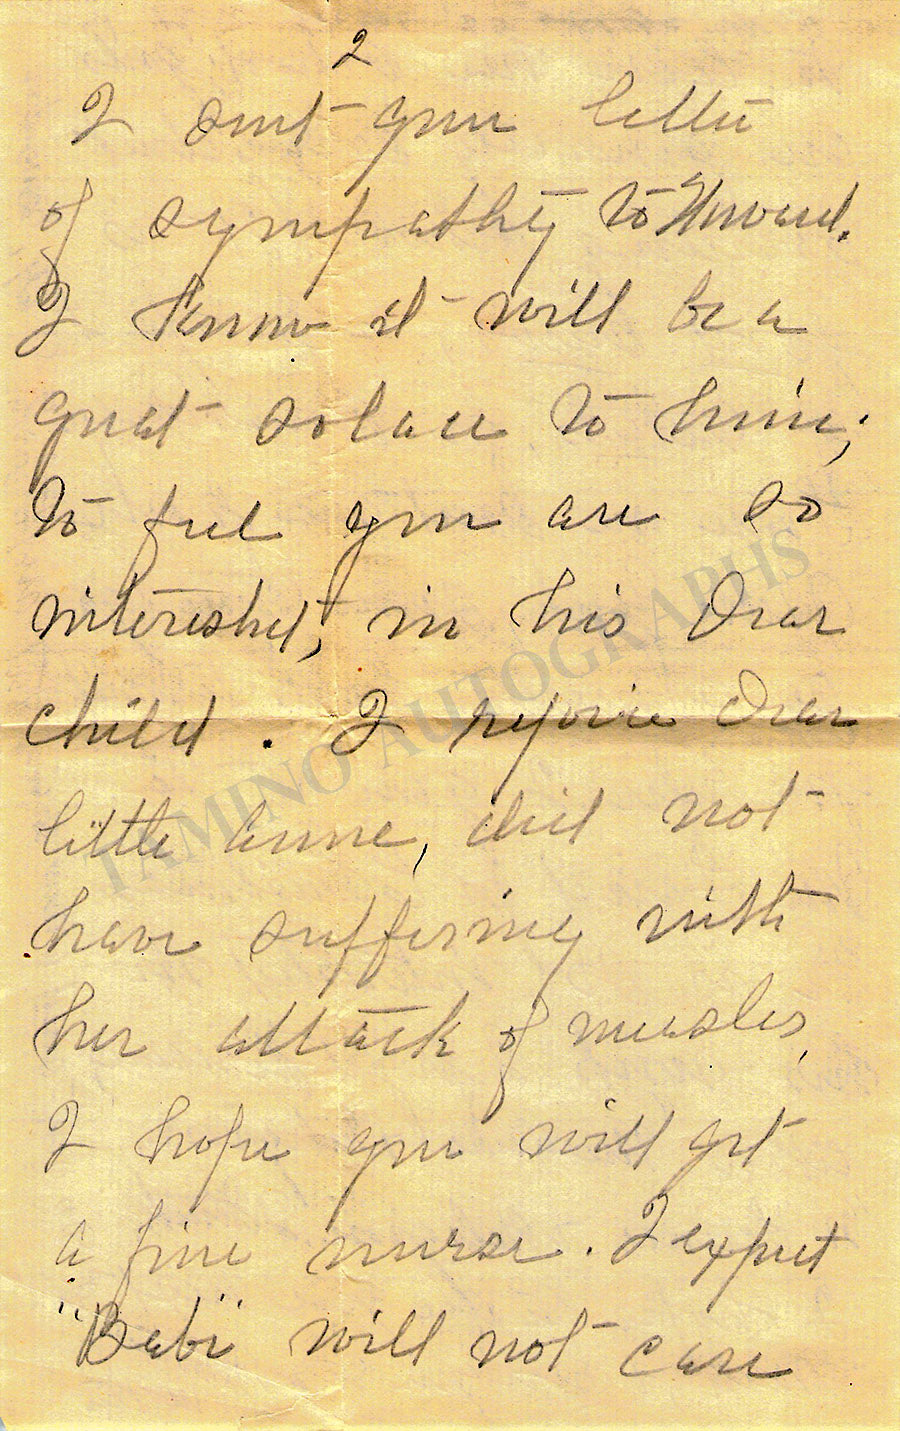 2
I sent your letter
of sympathy to Howard.
I know it will be a
great solace to him;
to feel you are so
interested, in his Dear
child. I rejoice Dear
little Anne, did not
have suffering with
her attack of measles,
I hope you will get
a fine nurse. I expect
"Babi" will not care
TAMINO AUTOGRAPHS